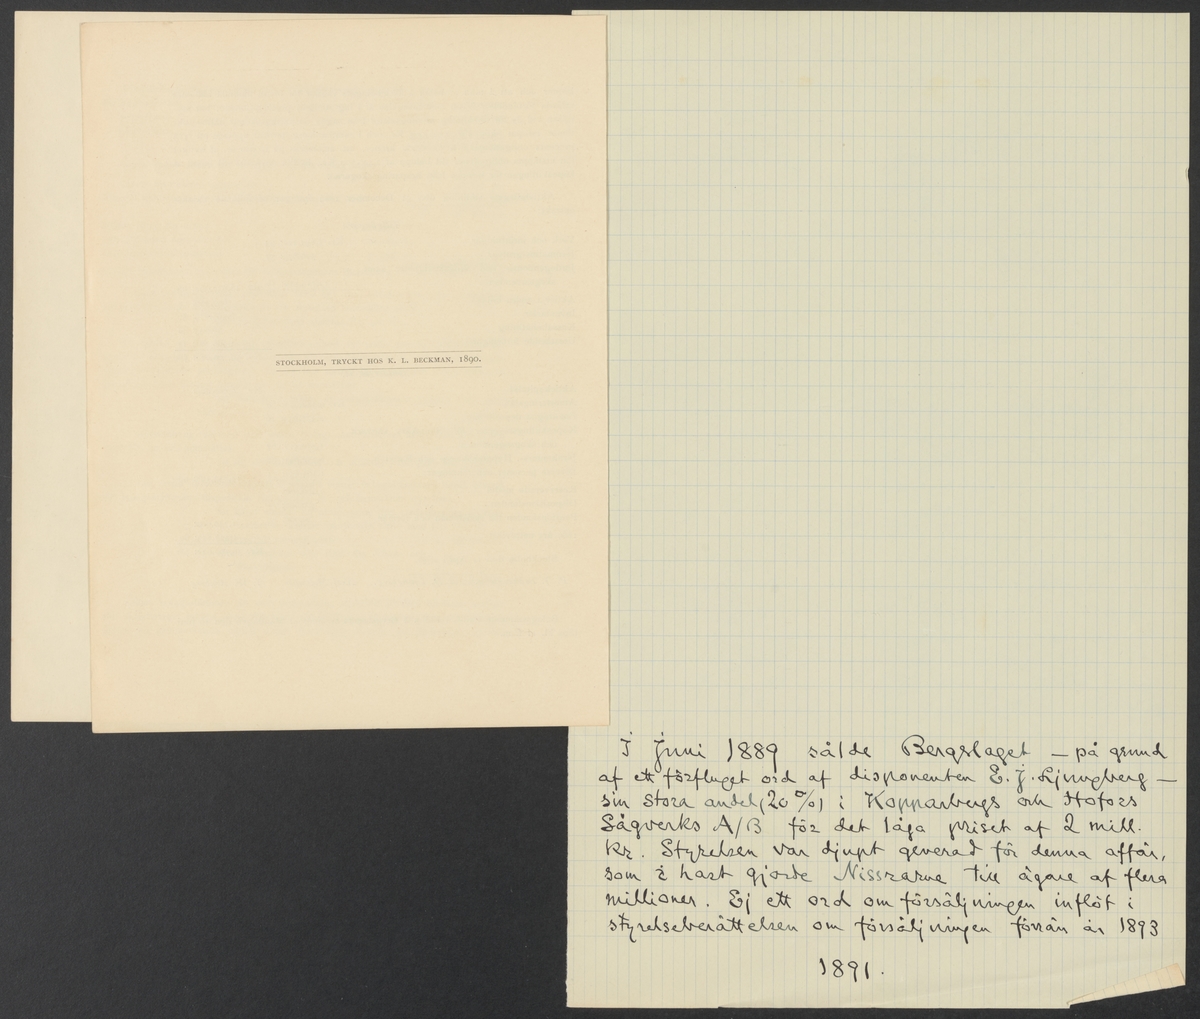 STOCKHOLM, TRYCKT HOS K. L. BECKMAN, 1890.
I Juni 1889 sålde Bergslaget – på grund
af ett förfluget ord af disponenten E. J. Ljungberg –
sin stora andel (20 %) i Kopparbergs och Hofors
Sågverks A/B för det låga priset af 2 mill.
kr. Styrelsen var djupt generad för denna affär,
som i hast gjorde Nissrarne till ägare af flera
millioner. Ej ett ord om försäljningen inflöt i
styrelseberättelsen om försäljningen förrän år 1893
1891.